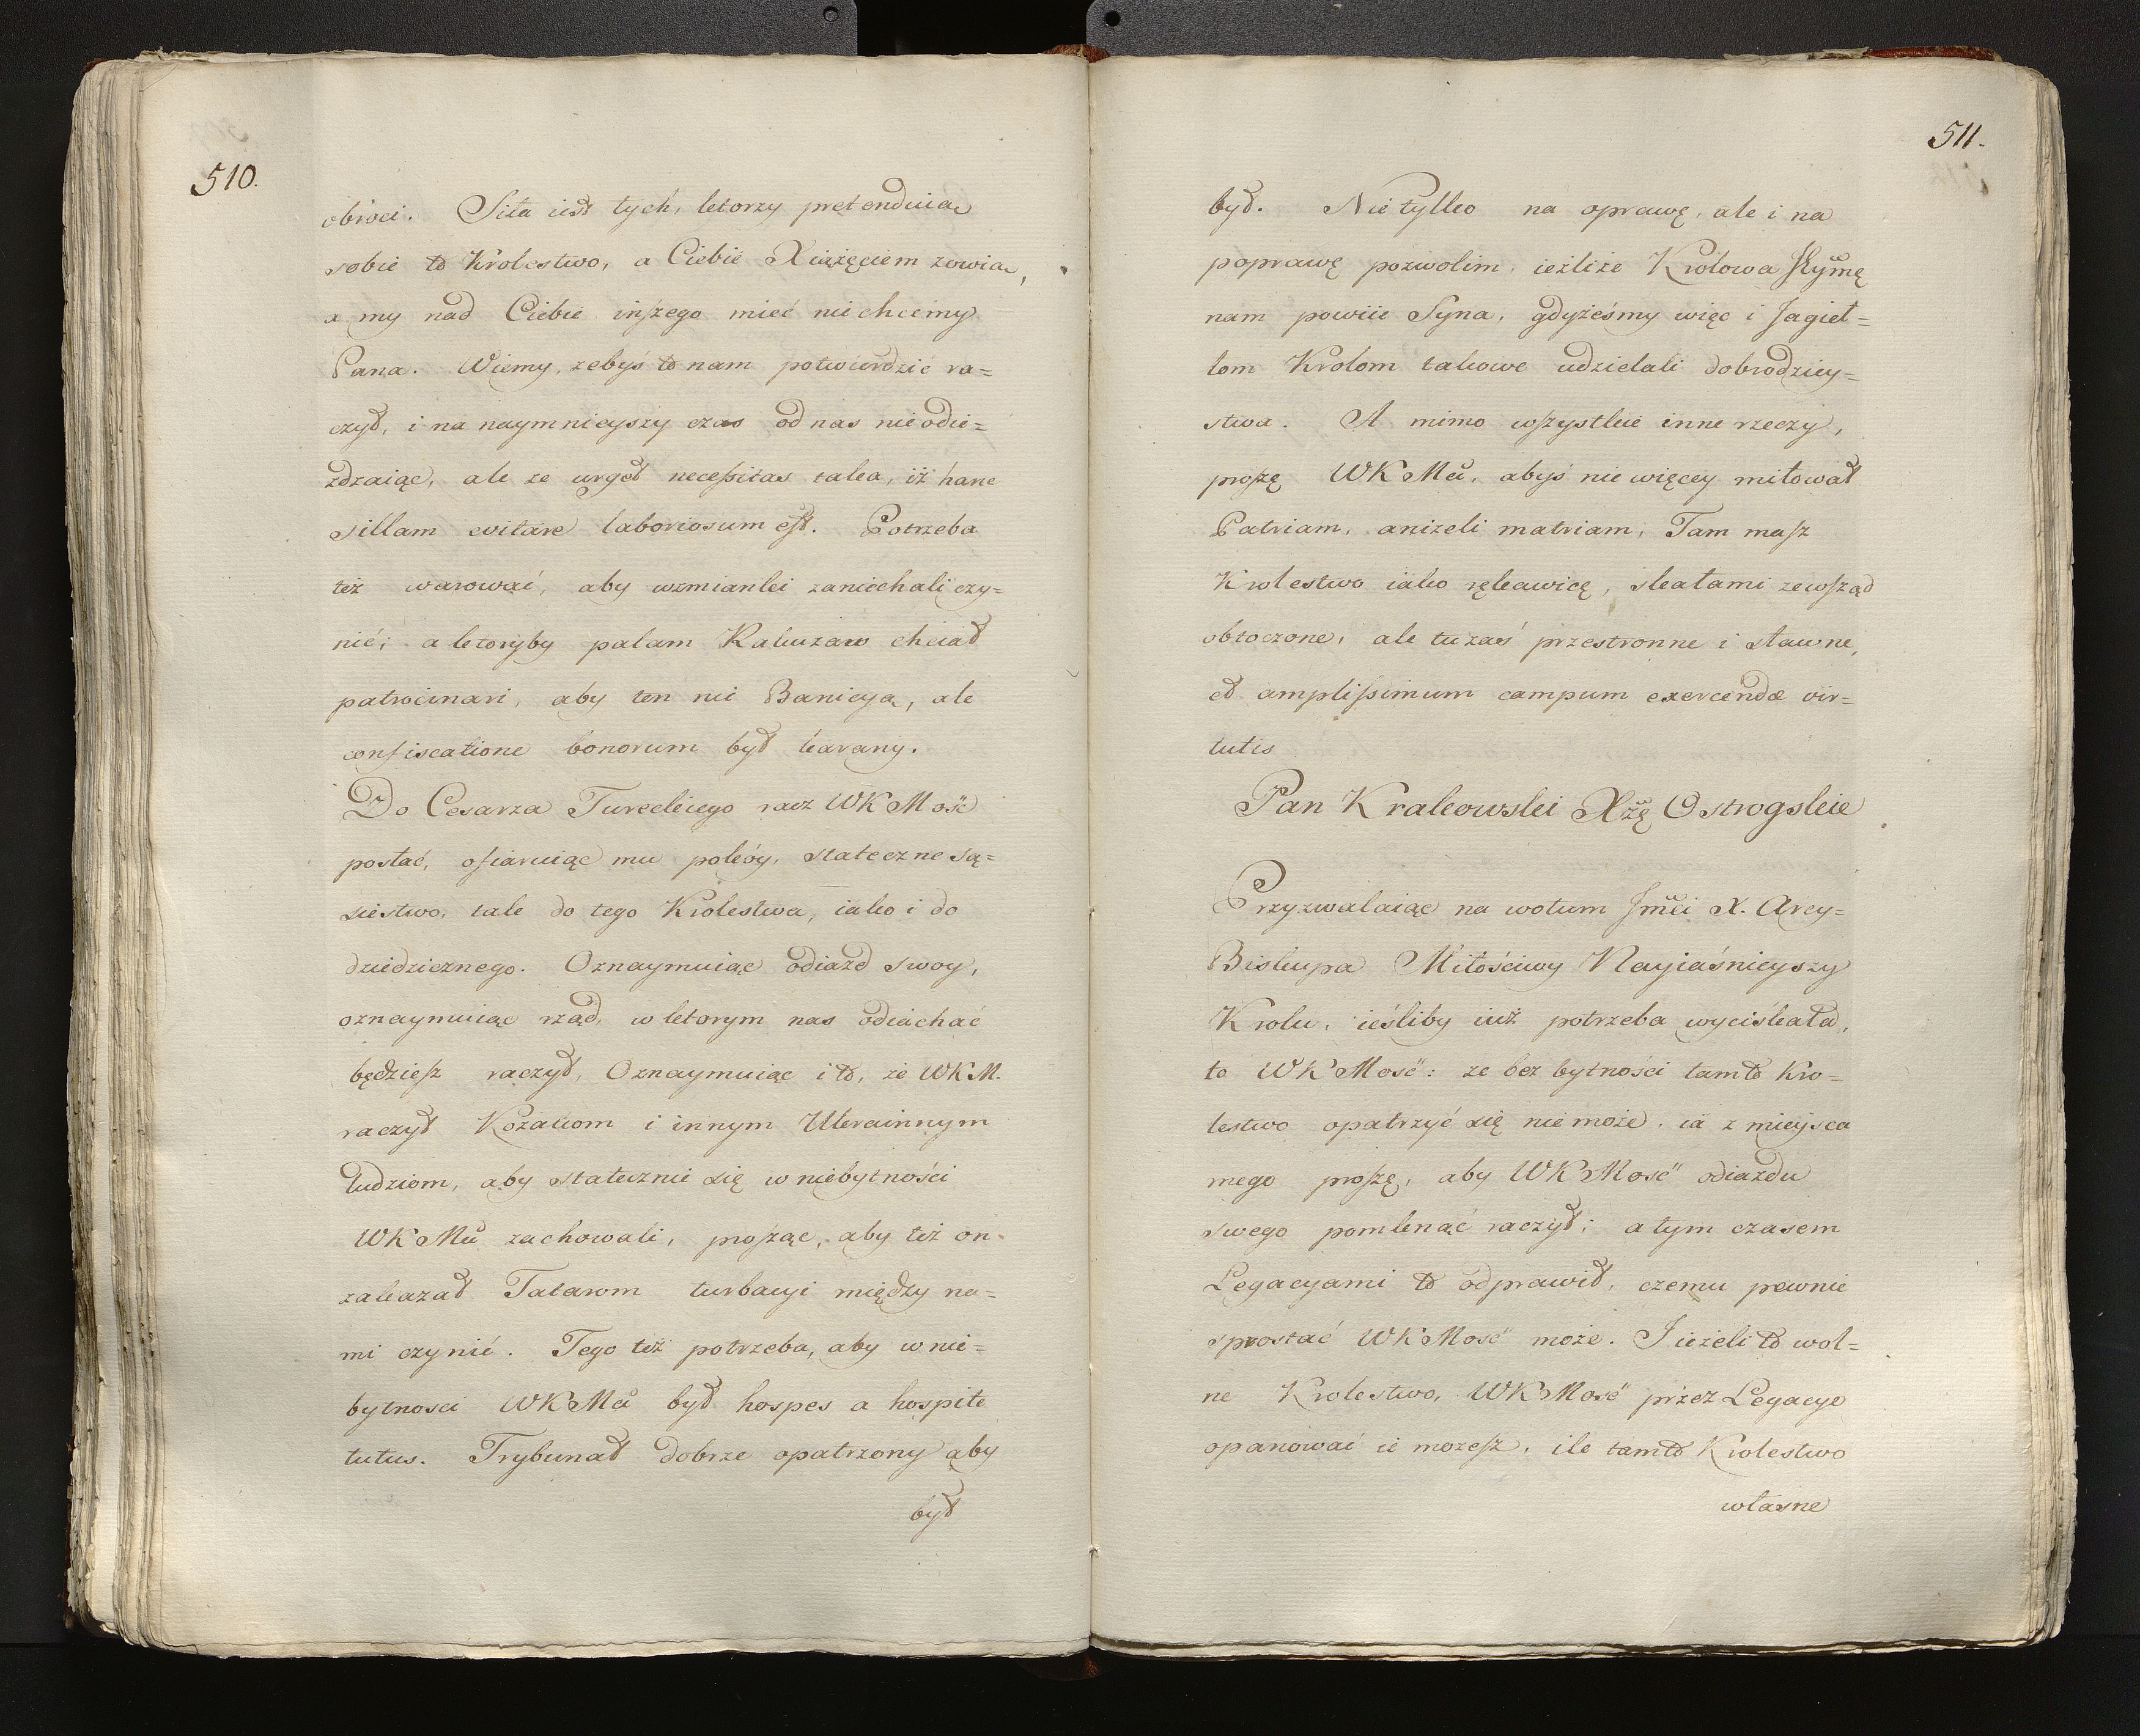 510.
obroci. Siła iest tych, ktorzy pretenduiac
sobie to Krolestwo, a Ciebie Xiążęciem zowia,
a my nad Ciebie inszego mieć niechcemy
Pana. Wiemy, zebyś to nam potwierdzić ra=
czył, i na naymnieyszy czas od nas nieodie=
zdzaiąc, ale ze urget necessitas taka, iż hanc
sillam evitare laboriosum est. Potrzeba
też warować, aby wzmianki zaniechali czy=
nić; a ktoryby palam Rakuzaw chciał
patrocinari, aby ten nie Banicyą, ale
confiscatione bonorum był karany.
Do Cesarza Tureckiego racz WKMość
posłać, ofiaruiąc mu pokóy, stateczne są=
siestwo, tak do tego Krolestwa, iako i do
dziedzicznego. Oznaymuiąc odiazd swoy,
oznaymuiąc rząd, w ktorym nas odiachać
będziesz raczył, Oznaymuiąc i to, że WKM.
raczył Kozakom i innym Ukrainnym
ludziom, aby statecznie się w niebytności
WKMci zachowali, prosząc, aby też on
zakazał Tatarom turbacyi między na=
mi czynić. Tego też potrzeba, aby w nie=
bytnosci WKMci był hospes a hospite
tutus. Trybunał dobrze opatrzony aby
był
511.
był. Nietylko na oprawę, ale i na
poprawę pozwolim, ieżliże Krolowa Jeymę
nam powiie Syna, gdyżeśmy więc i Jagieł=
łom Krolom takowe udzielali dobrodziey=
stwa. A mimo wszystkie inne rzeczy,
proszę WKMci, abyś nie więcey miłował
Patriam, aniżeli matriam; Tam masz
Krolestwo iako rękawicę, skałami zewsząd
obtoczone, ale tu zaś przestronne i sławne,
et amplissimum campum exercendæ vir=
tutis
Pan Krakowski Xżę Ostrogskie
Przyzwalaiąc na wotum Jmci X. Arcy=
Biskupa Miłościwy Nayiaśnieyszy
Krolu, ieśliby iuż potrzeba wyciskała,
to WKMość: ze bez bytności tamto Kro=
lestwo opatrzyć się nie może, ia z mieysca
mego proszę, aby WKMość odiazdu
swego pomknąć raczył; a tym czasem
Legacyami to odprawił, czemu pewnie
sprostać WKMość może. I ieżeli to wol=
ne Krolestwo, WKMość przez Legacye
opanować ie mozesz, ile tamto Krolestwo
własne